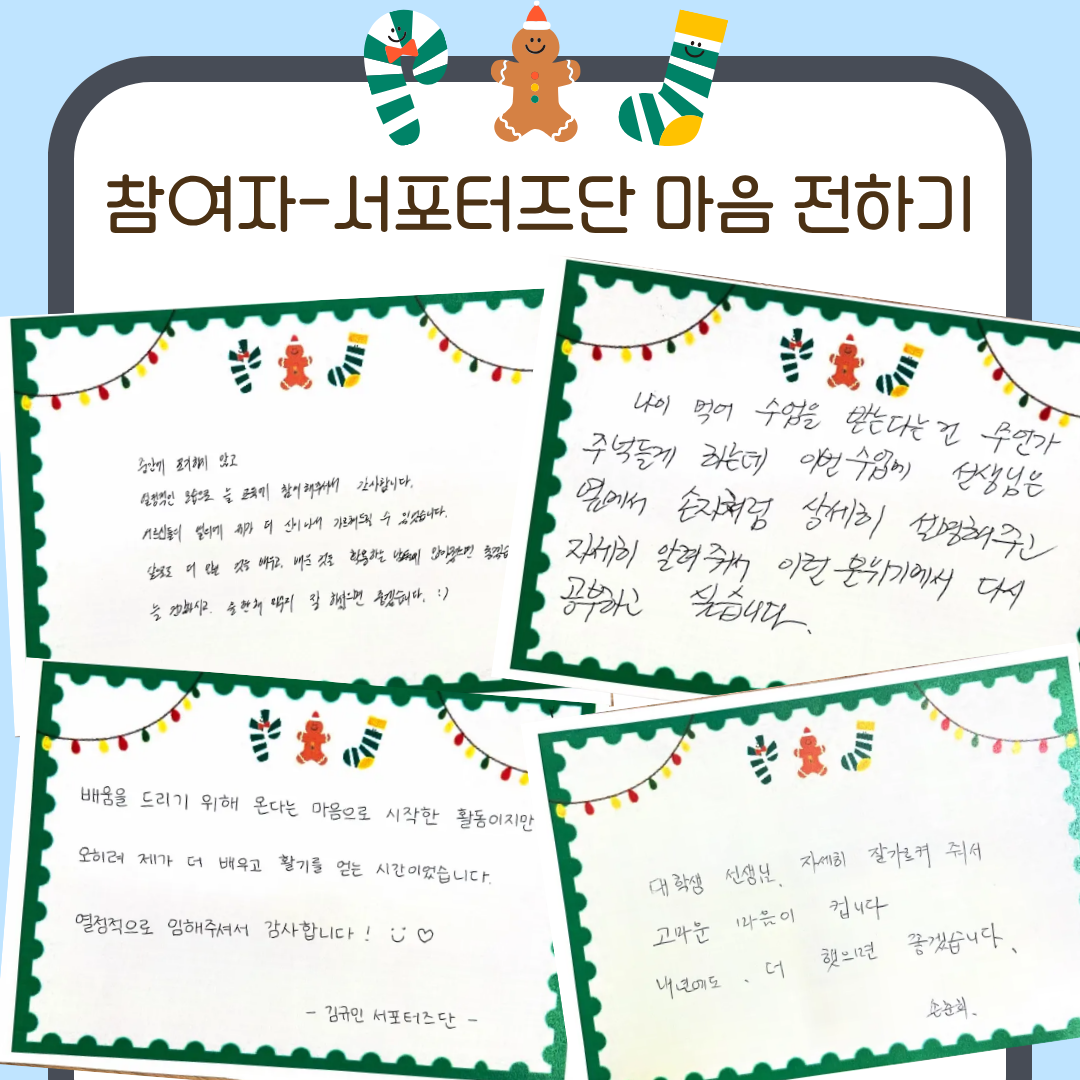 참여자-서포터즈단 마음 전하기
중간에 포기하지 않고
열정적인 모습으로 늘 교육에 참여해주셔서 감사합니다.
어르신들의 열의에 제가 더 신이나서 가르쳐드릴 수 있었습니다.
앞으로도 더 많은 것을 배우고, 배운 것을 활용하는
늘 건강하시고. 올 한 해 마무리 잘 했으면 좋겠습니다. :)
나이 먹어 수업을 받는다는 건 무언가
주눅들게 하는데 이번 수업에 선생님은
옆에서 손자처럼 상세히 설명해주고
자세히 알려줘서 이런 분위기에서 다시
공부하고 싶습니다.
배움을 드리기 위해 온다는 마음으로 시작한 활동이지만
오히려 제가 더 배우고 활기를 얻는 시간이었습니다.
열정적으로 임해주셔서 감사합니다! ♡
- 김규민 서포터즈단 -
대학생 선생님. 자세히 잘가르켜 줘서
고마운 마음이 컵니다
내년에도. 더 했으면 좋겠습니다.
손순희.